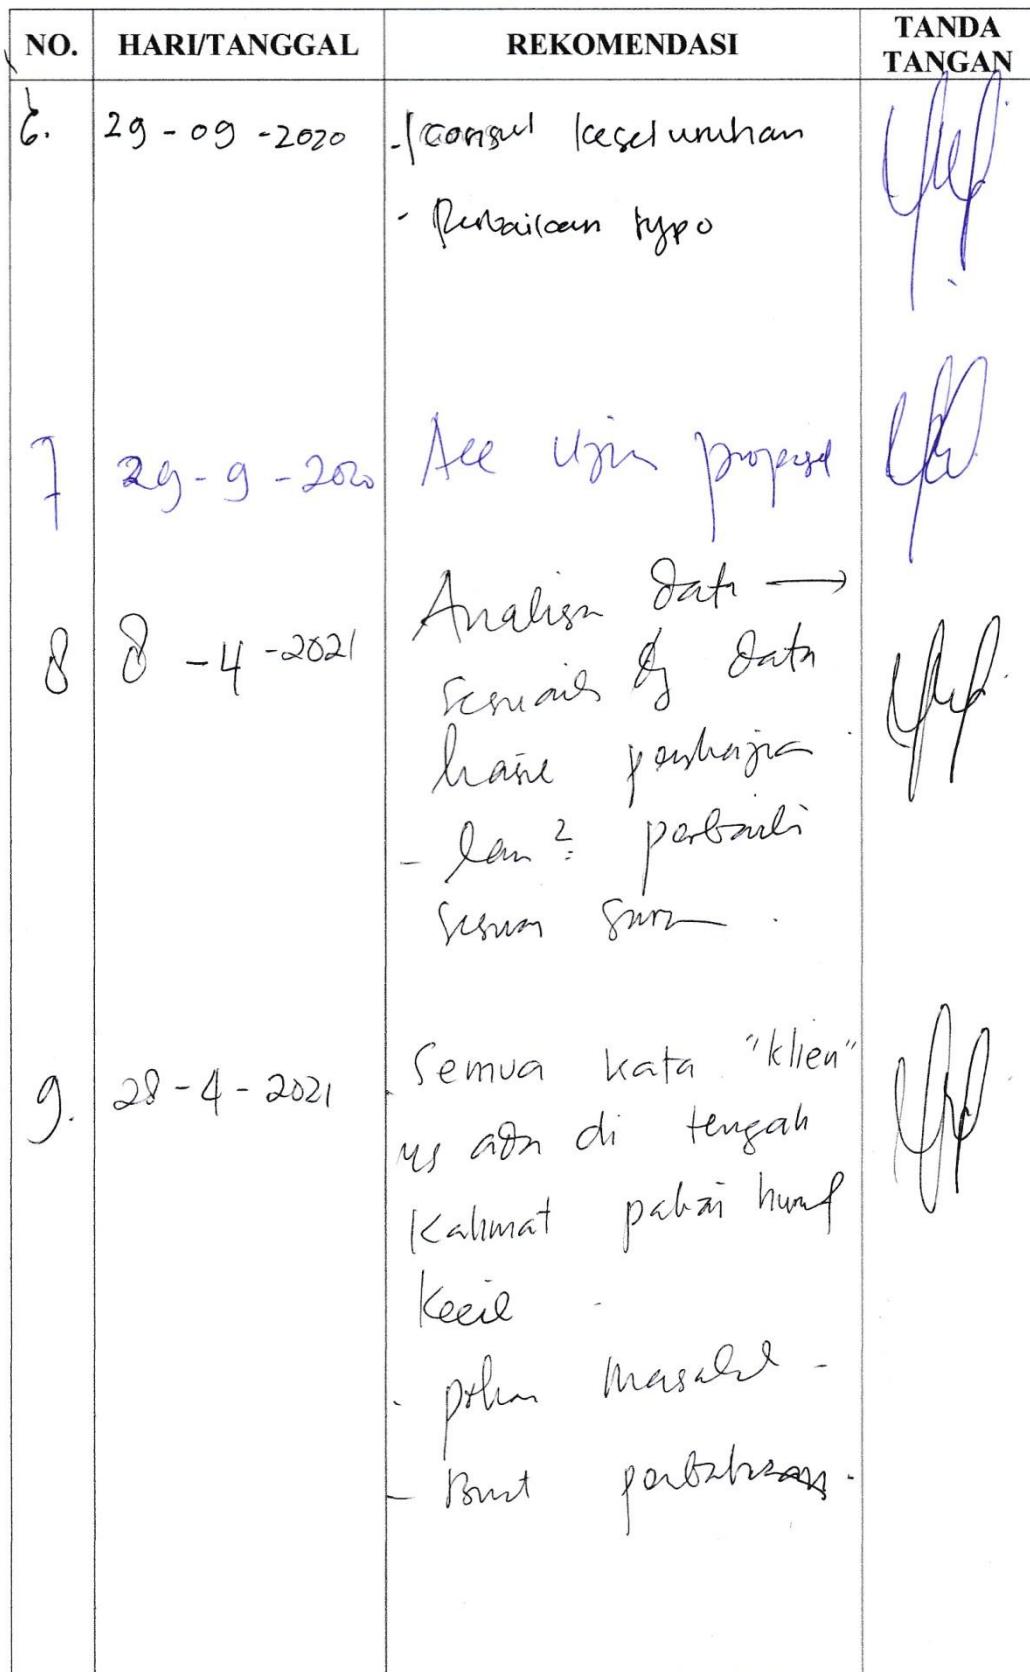 NO. HARI/TANGGAL REKOMENDASI TANDA TANGAN
6. 29-09-2020 - Konsul keseluruhan
- Perbaikan typo
7 29-9-2020 Acc Ujian proposal
Analisa data →
8 8-4-2021 sesuaik dg data
hasil pengkajian
- lain2 perbaiki
sesuai saran.
9. 28-4-2021 - Semua kata "klien"
yg ada di tengah
Kalimat pakai huruf
Kecil
- pohon masalah -
- Buat pembahasan.